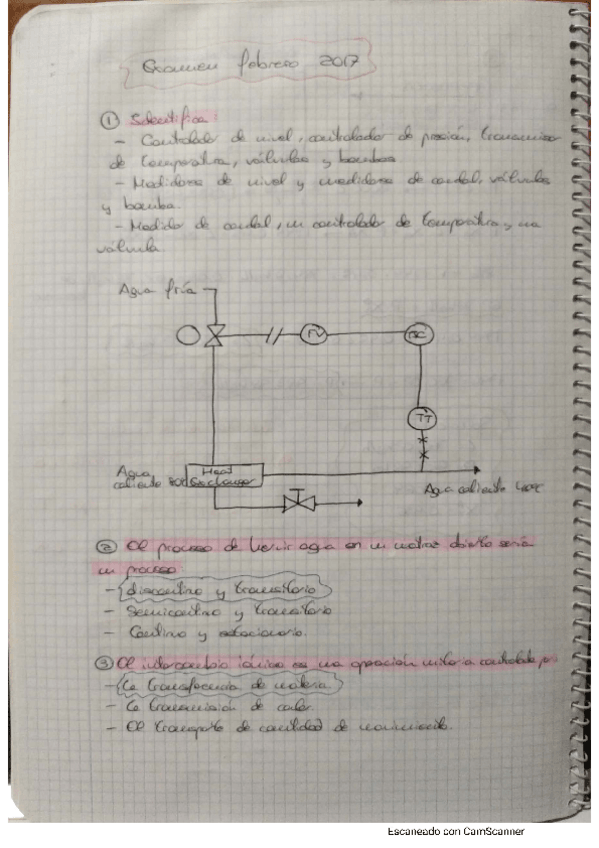 Examen febrero 2017
① Identifica:
- Controlador de nivel, controlador de presión, transmisor
de temperatura, válvulas y bombas
- Medidores de nivel y medidores de caudal, válvulas
y bomba.
- Medidor de caudal, un controlador de temperatura y una
válvula
Agua fría
TT
Agua
caliente 80ºC
Heat
Exchanger
Agua caliente 40ºC
② El proceso de hervir agua en un matraz abierto sería
un proceso:
- discontinuo y transitorio
- Semicontinuo y transitorio
- Continuo y estacionario.
③ El intercambio iónico es una operación unitaria controlada por:
- La transferencia de materia
- La transmisión de calor.
- El transporte de cantidad de movimiento.
Escaneado con CamScanner